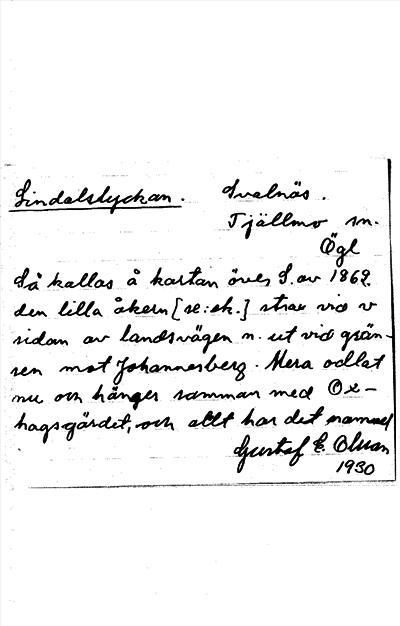 Lindalstyckan. Svalnäs.
Tjällmo sn.
Ögl
Så kallas å kartan över S. av 1869.
den lilla åkern [se: sk.] strax vid v
sidan av landsvägen n. ut vid grän-
sen mot Johannesberg. Mera odlat
nu och hänger samman med Ox-
hagsgärdet, och allt har det namnet
Gustaf E. Olsson
1930